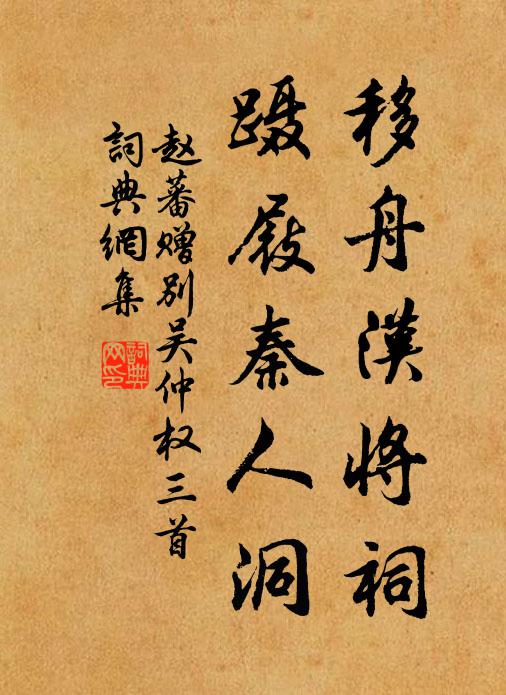 移舟漢将祠
蹑屐秦人洞
赵蕃赠别吴仲权三首
詞典網集
詞典網印